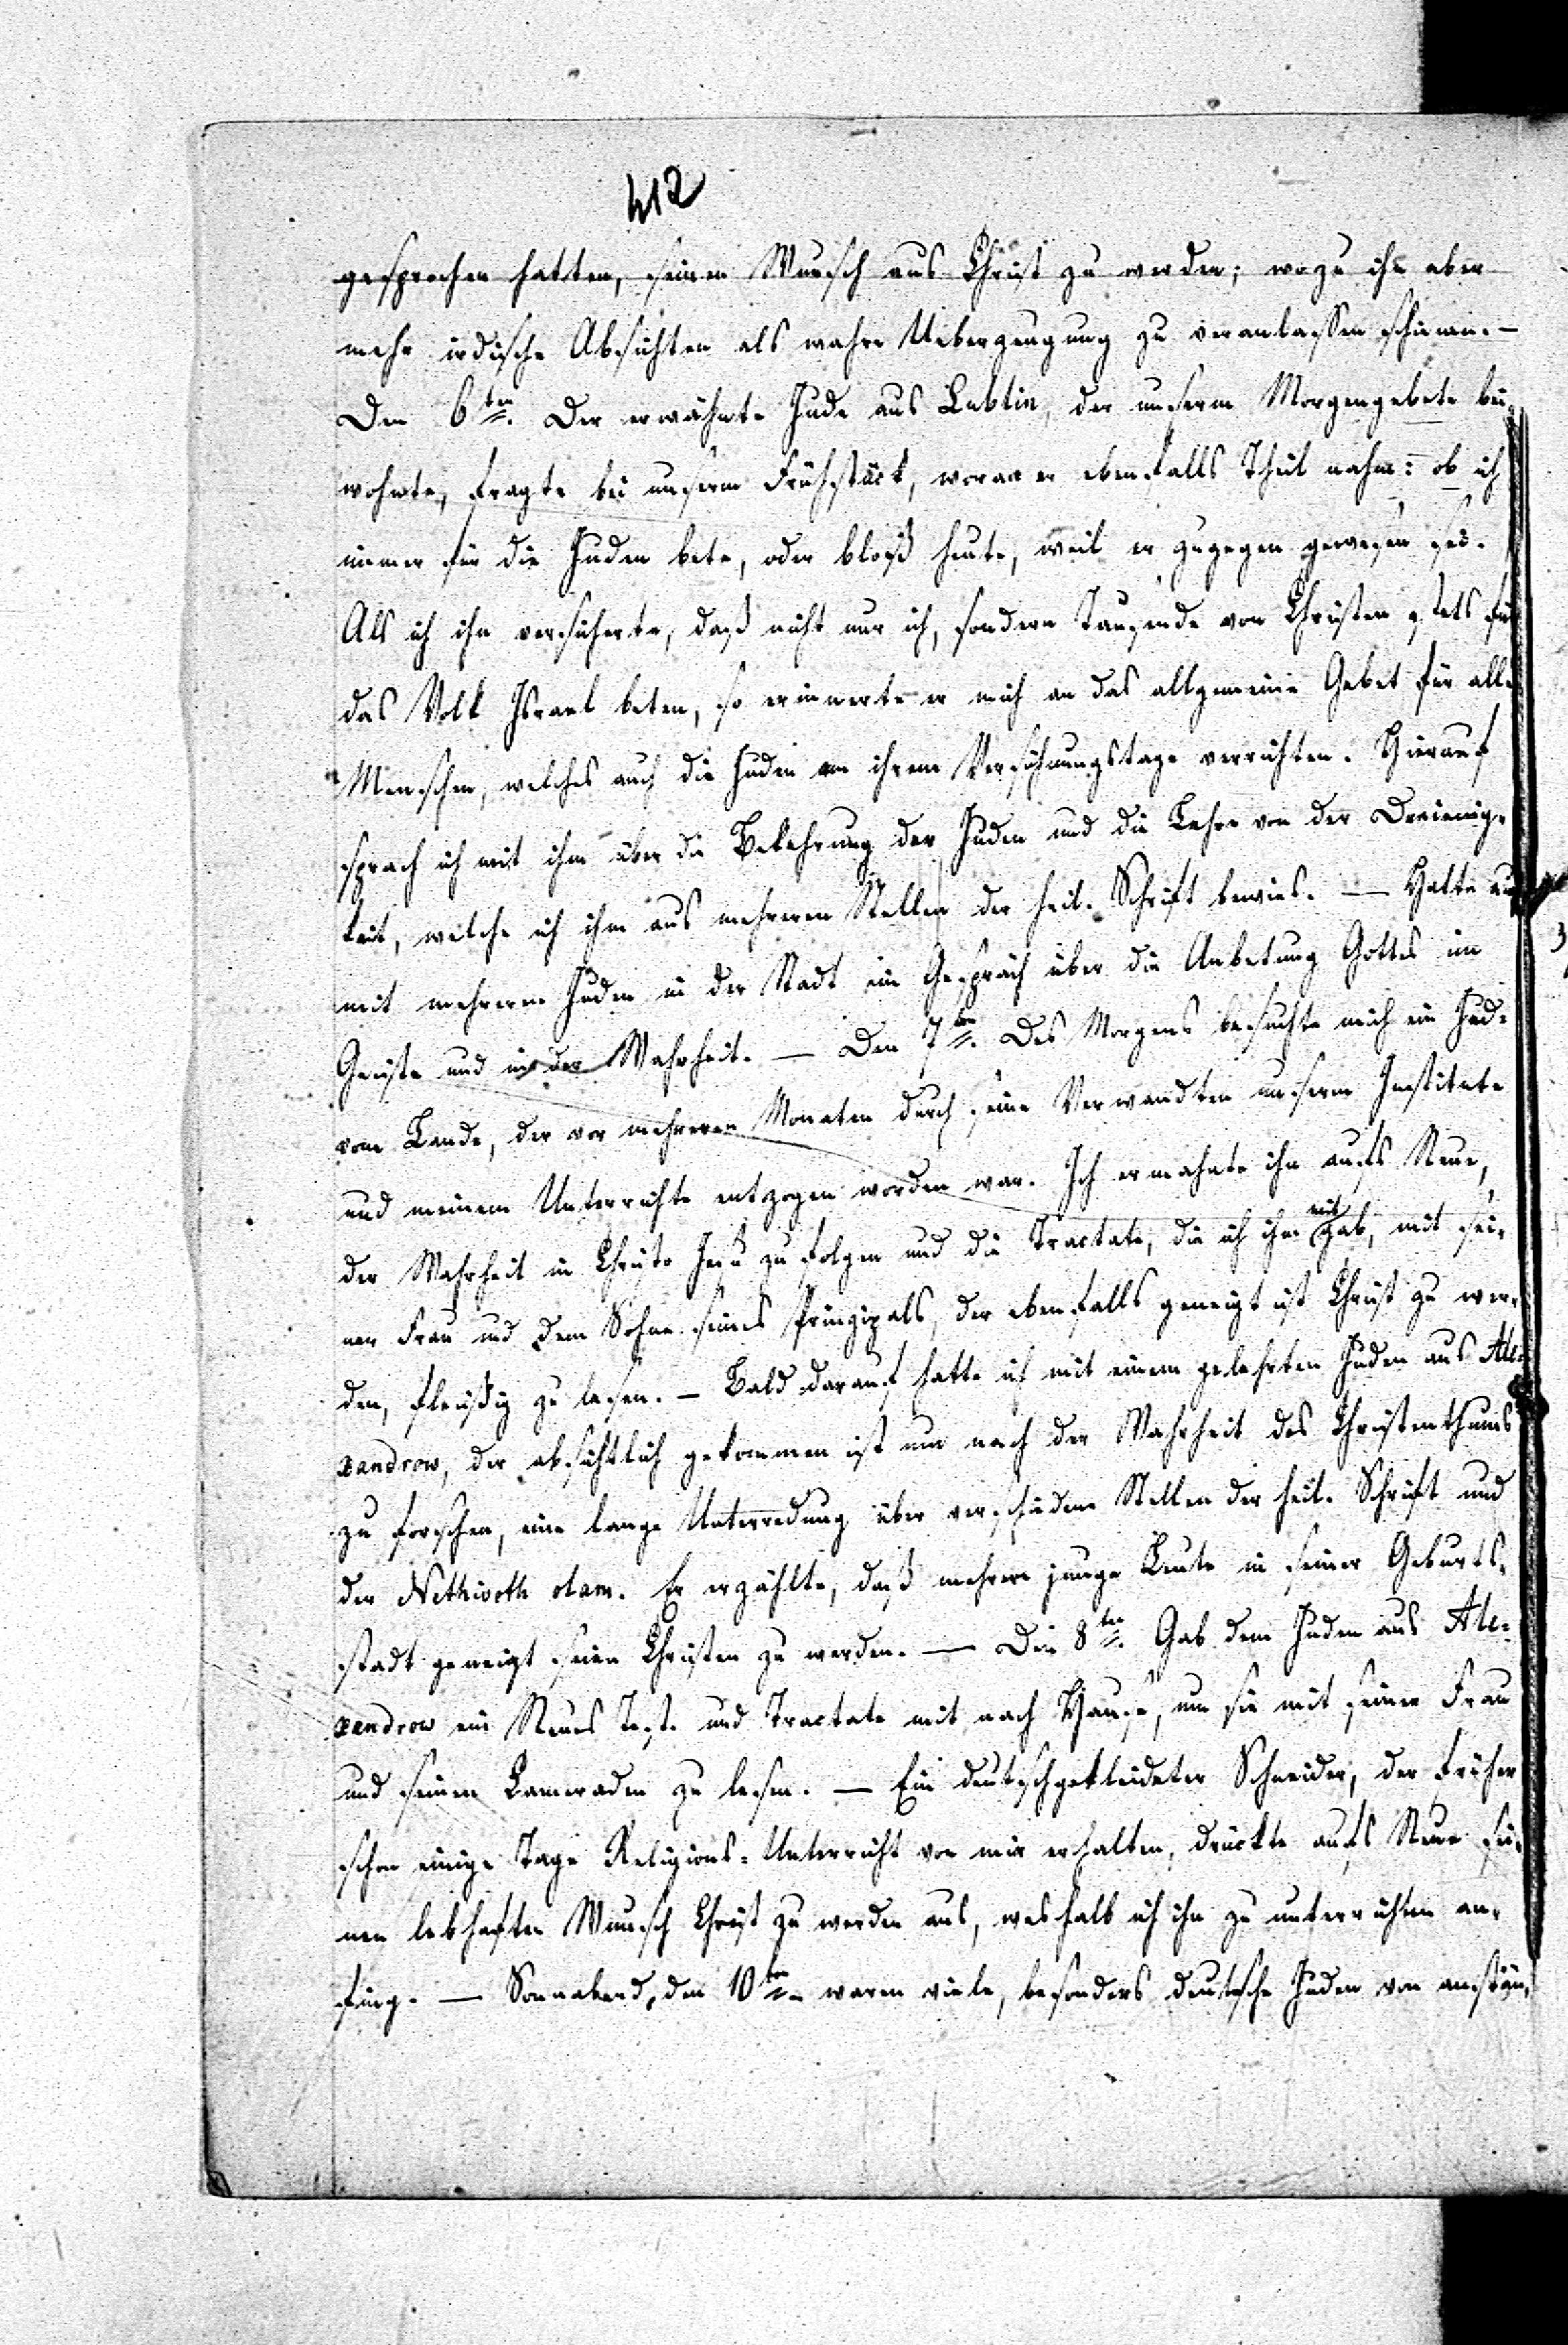 412
gesprochen hatten, seinen Wunsch aus Christ zu werden; wozu ihn aber
mehr irdische Absichten als wahre Ueberzeugung zu veranlassen schienen. –
Den 6ten. Der erwähnte Jude aus Lublin, der unserm Morgengebete bei-
wohnte, fragte bei unserm Frühstück, woran er ebenfalls Theil nahm: ob ich
immer für die Juden bete, oder bloß heute, weil er zugegen gewesen sei.
Als ich ihn versicherte, daß nicht nur ich, sondern Tausende von Christen stets für
das Volk Israel beten, so erinnerte er mich an das allgemeine Gebet für alle
Menschen, welches auch die Juden an ihrem Versöhnungstage verrichten. Hierauf
sprach ich mit ihm über die Bekehrung der Juden und die Lehre von der Dreieinig-
keit, welche ich ihm aus mehreren Stellen der heil. Schrift bewies. — Hatte auch
mit mehreren Juden in der Stadt ein Gespräch über die Anbetung Gottes im
Geiste und in der Wahrheit. — Den 7ten. Des Morgens besuchte mich ein Jude
vom Lande, der vor mehreren Monaten durch seine Verwandten unserm Institute
und meinem Unterrichte entzogen worden war. Ich ermahnte ihn aufs Neue,
der Wahrheit in Christo Jesu zu folgen und die Tractate, die ich ihm mitgab, mit sei-
ner Frau und dem Sohne seines Prinzipals, der ebenfalls geneigt ist Christ zu wer-
den, fleißig zu lesen. – Bald darauf hatte ich mit einem gelehrten Juden aus Ale-
xandrow, der absichtlich gekommen ist um nach der Wahrheit des Christenthums
zu forschen, eine lange Unterredung über verschiedene Stellen der heil. Schrift und
der Nethivoth olam. Er erzählte, daß mehrere junge Leute in seiner Geburts-
stadt geneigt seien Christen zu werden. — Den 8ten. Gab dem Juden aus Ale-
xandrow ein Neues Test. und Tractate mit nach Hause, um sie mit seiner Frau
und seinen Kameraden zu lesen. — Ein deutschgekleideter Schneider, der früher
schon einige Tage Religions-Unterricht von mir erhalten, drückte aufs Neue sei-
nen lebhaften Wunsch Christ zu werden aus, weshalb ich ihn zu unterrichten an-
fing. — Sonnabend, den 10ten waren viele, besonders deutsche Juden von anstän-